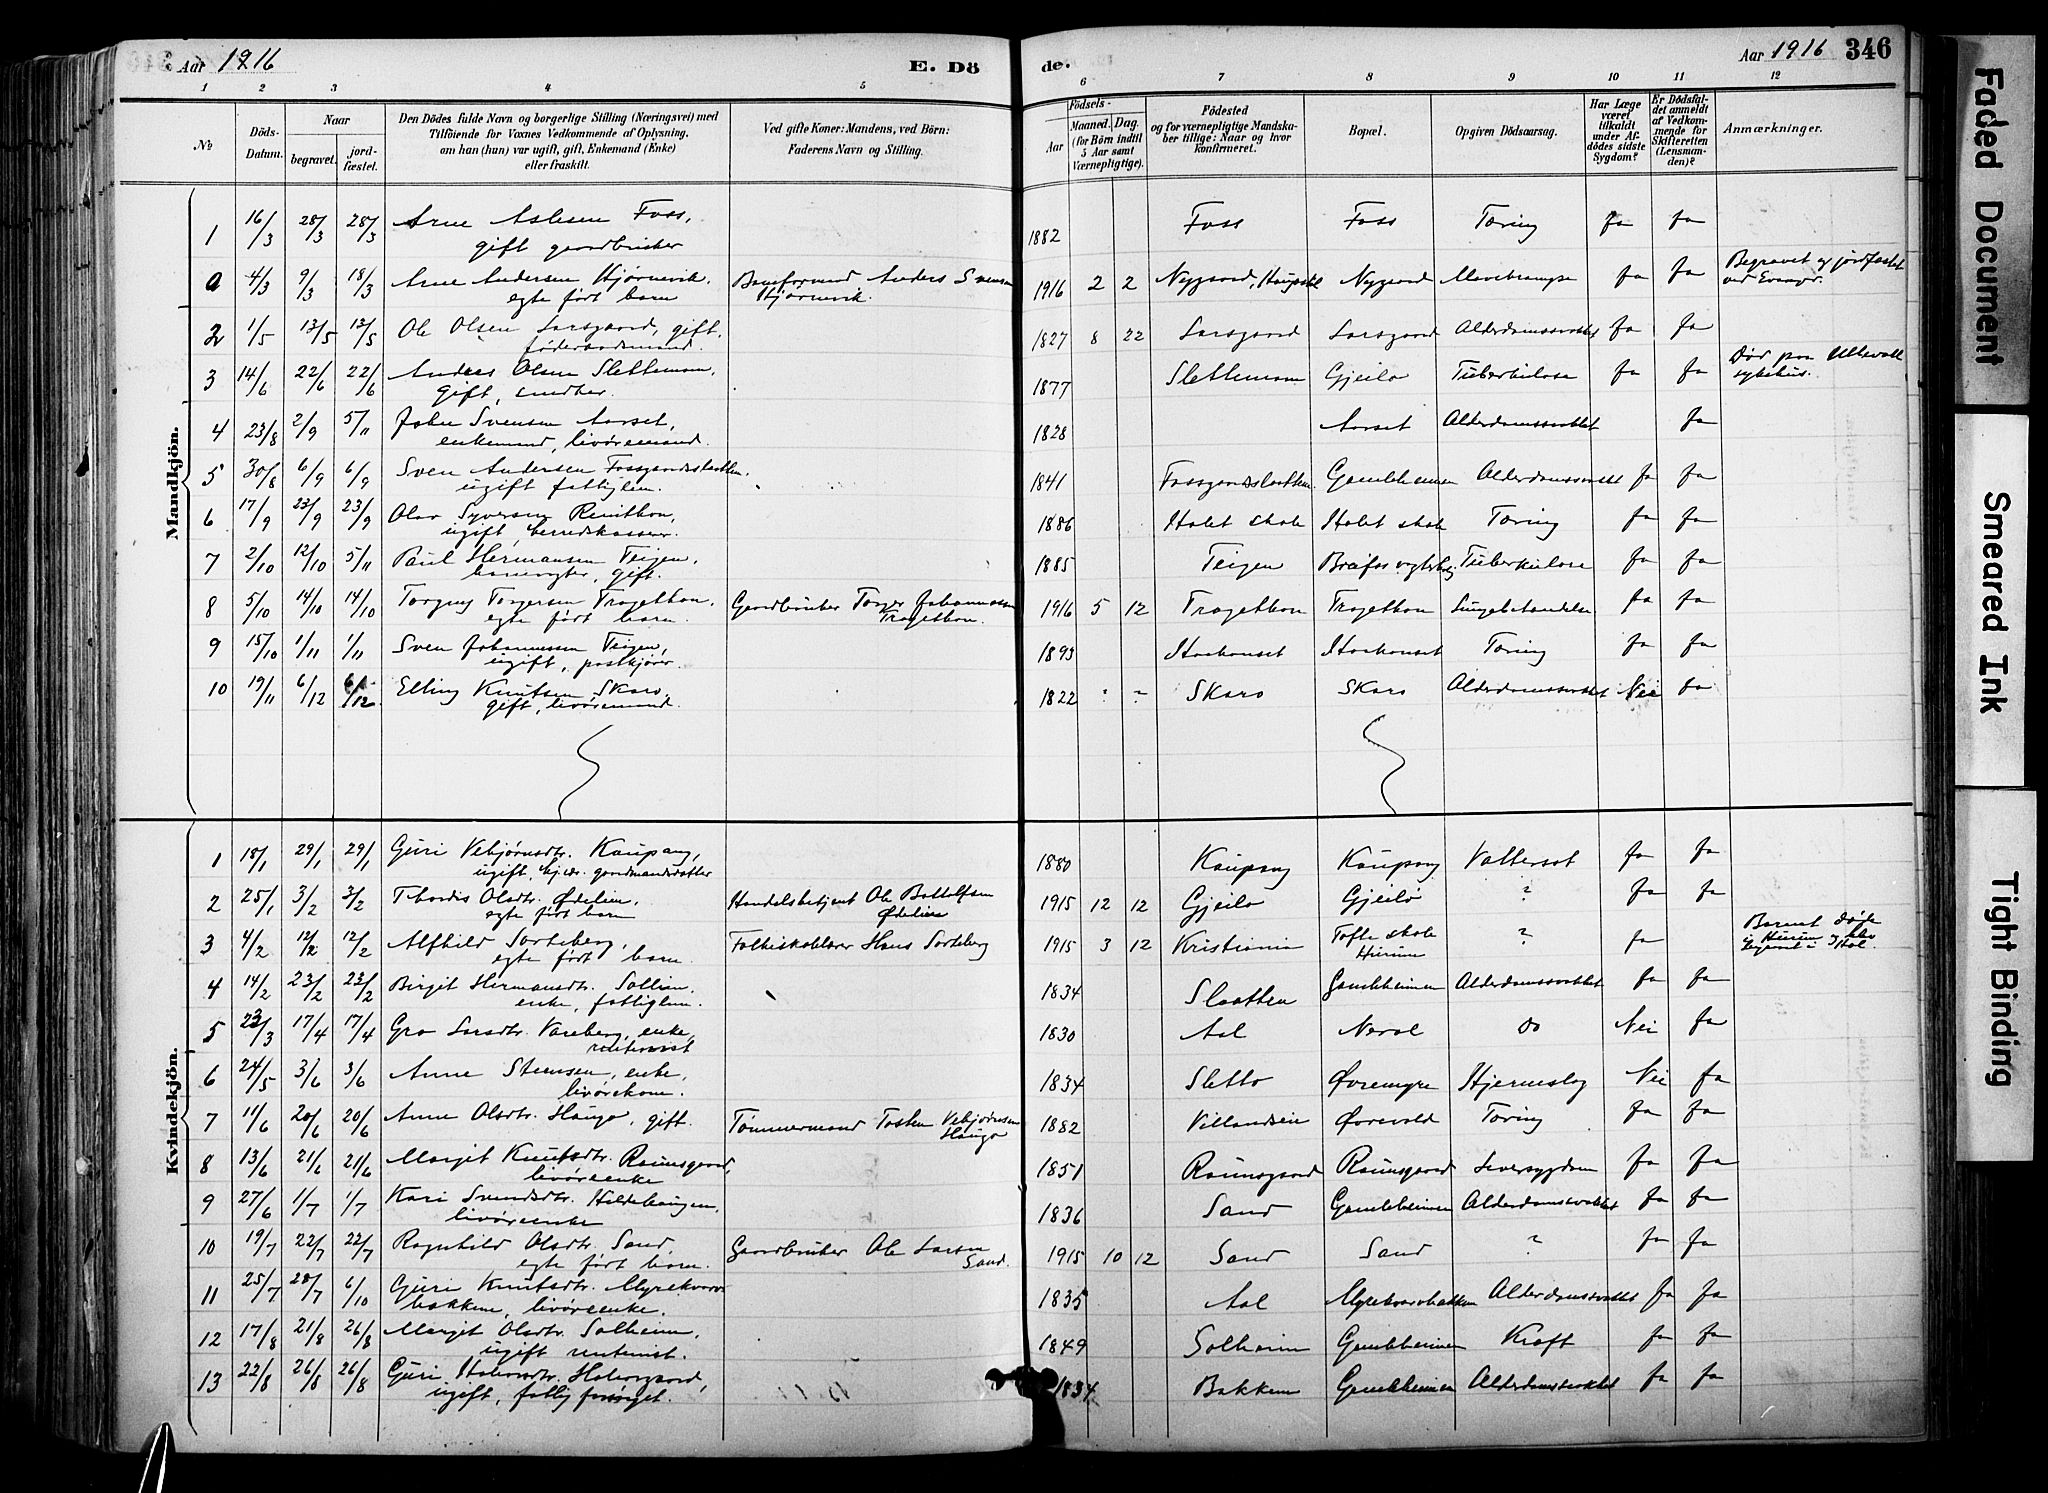 Aar 1916
E. Dö
de.
Aar 1916
346
1 2 3 4 5 6 7 8 9 10 11 12
№
Döds-Datum.
Naar
begravet.
jord-fæstet.
Den Dödes fulde Navn og borgerlige Stilling (Næringsvei) med
Tilföiende for Voxnes Vedkommende af Oplysning,
om han (hun) var ugift, gift, Enkemand (Enke)
eller fraskilt.
Ved gifte Koner: Mandens, ved Börn:
Faderens Navn og Stilling.
Födsels-
Aar
Maaned. Dag.
(for Börn indtil
5 Aar samt
Værnepligtige).
Födested
og for værnepligtige Mandska-
ber tillige: Naar og hvor
konfirmeret.
Bopæl.
Opgiven Dödsaarsag.
Har Læge
været
tilkaldt
under Af-
dödes sidste
Sygdom?
Er Dödsfal-
det anmeldt
af Vedkom-
mende for
Skifteretten
(Lensman-
den)?
Anmærkninger.
Mandkjön.
1 16/3 28/3 28/3 Arne Aslesen Foss, 1882 Foss Foss Tæring ja ja
gift gaardbruker
a 4/3 9/3 18/3 Arne Andersen Hjørnevik, Baneformand Anders Svensen 1916 2 2 Nygaard, Nygaard Mavekrampe ja ja Begravet og jordfæstet
egte født barn Hjørnevik. ved
2 1/5 13/5 13/5 Ole Olsen Larsgaard, gift, 1827 8 22 Larsgaard Larsgaard Alderdomssvakhet ja ja
føderaadsmand.
3 14/6 22/6 22/6 Anders Olsen Slettemoen, 1877 Slettemoen Gjeilo Tuberkulose ja ja Død paa Ullevaal
gift, snedker. sykehus.
4 23/8 2/9 5/11 John Svensen Aarset, 1828 Aarset Alderdomssvakhet ja
enkemand, livøremand.
5 30/8 6/9 6/9 Sven Andersen Fossgaardsslaatten, 1841 Fossgaardsslaatten Gamleheimen Alderdomssvakhet ja ja
ugift fattiglem.
6 17/9 23/9 23/9 Olav Syversen Reinthon, 1886 Holet skole Holet skole Tæring ja ja
ugift herredskasserer
7 2/10 12/10 5/11 Paul Hermansen Teigen, 1885 Teigen Tuberkulose ja ja
banevogter, gift.
8 5/10 14/10 14/10 Torgeir Torgersen Tragethon, Gaardbruker Torger Johannessen 1916 5 12 Tragethon Tragethon Lungebetændelse ja ja
egte født barn. Tragethon.
9 15/10 1/11 1/11 Sven Johannessen Teigen, 1893 Tæring ja ja
ugift, postkjører.
10 19/11 6/12 6/12 Elling Knutsen Skaro, 1822 " " Skaro Skaro Alderdomssvakhet Nei ja
gift, livøremand.
Kvindekjön.
1 18/1 29/1 29/1 Guri Vebjørnsdtr. Kaupang, 1880 Kaupang Kaupang Vattersot ja ja
ugift, hjv. gaardmandsdatter
2 25/1 3/2 3/2 Thordis Olsdtr. Ødelien, Handelsbetjent Ole Bottolfsen 1915 12 12 Gjeilo Gjeilo ? ja ja
egte født barn Ødelien
3 4/2 12/2 12/2 Alfhild Sorteberg, Folkeskolelærer Hans Sorteberg 1915 3 12 Kristiania Tofte skole ? ja Barnet døde
egte født barn. Hurum i Hurum og blev
begravet i Hol.
4 14/2 23/2 23/2 Birgit Hermansdtr. Sollien, 1834 Slaatten Gamleheimen Alderdomssvakhet ja ja
enke, fattiglem.
5 23/3 17/4 17/4 Gro Larsdtr. Vareberg, enke, 1830 Aal Neraal do Nei ja
rentenist
6 24/5 3/6 3/6 Anne Stensen, enke, 1834 Sletto Øvremyre Hjerneslag Nei ja
livørekone.
7 11/6 20/6 20/6 Anne Olsdtr. Haugo, gift. Tømmermand Tosten Vebjørnsen 1882 Villandseie Ørevold Tæring ja ja
Haugo
8 13/6 21/6 21/6 Margit Knutsdtr. Raunsgaard, 1851 Raunsgaard Raunsgaard Leversygdom ja ja
livøreenke
9 27/6 1/7 1/7 Kari Svendsdtr. Hildehaugen, 1836 Sand Gamleheimen Alderdomssvakhet ja ja
livøreenke
10 19/7 22/7 22/7 Ragnhild Olsdtr. Sand, Gaardbruker Ole Larsen 1915 10 12 Sand Sand ? ja ja
egte født barn. Sand.
11 25/7 28/7 6/10 Guri Knutsdtr. Myrekvarv- 1835 Aal Myrekvarvbakken Alderdomssvakhet ja ja
bakken, livøreenke.
12 17/8 21/8 26/8 Margit Olsdtr. Solheim, 1849 Solheim Gamleheimen Kræft ja ja
ugift rentenist.
13 22/8 26/8 26/8 Guri Halvorsdtr. Halvorgaard, 1834 Bakken Gamleheimen Alderdomssvakhet ja ja
ugift, fattig forsørget.
Faded Document
Smeared Ink
Tight Binding